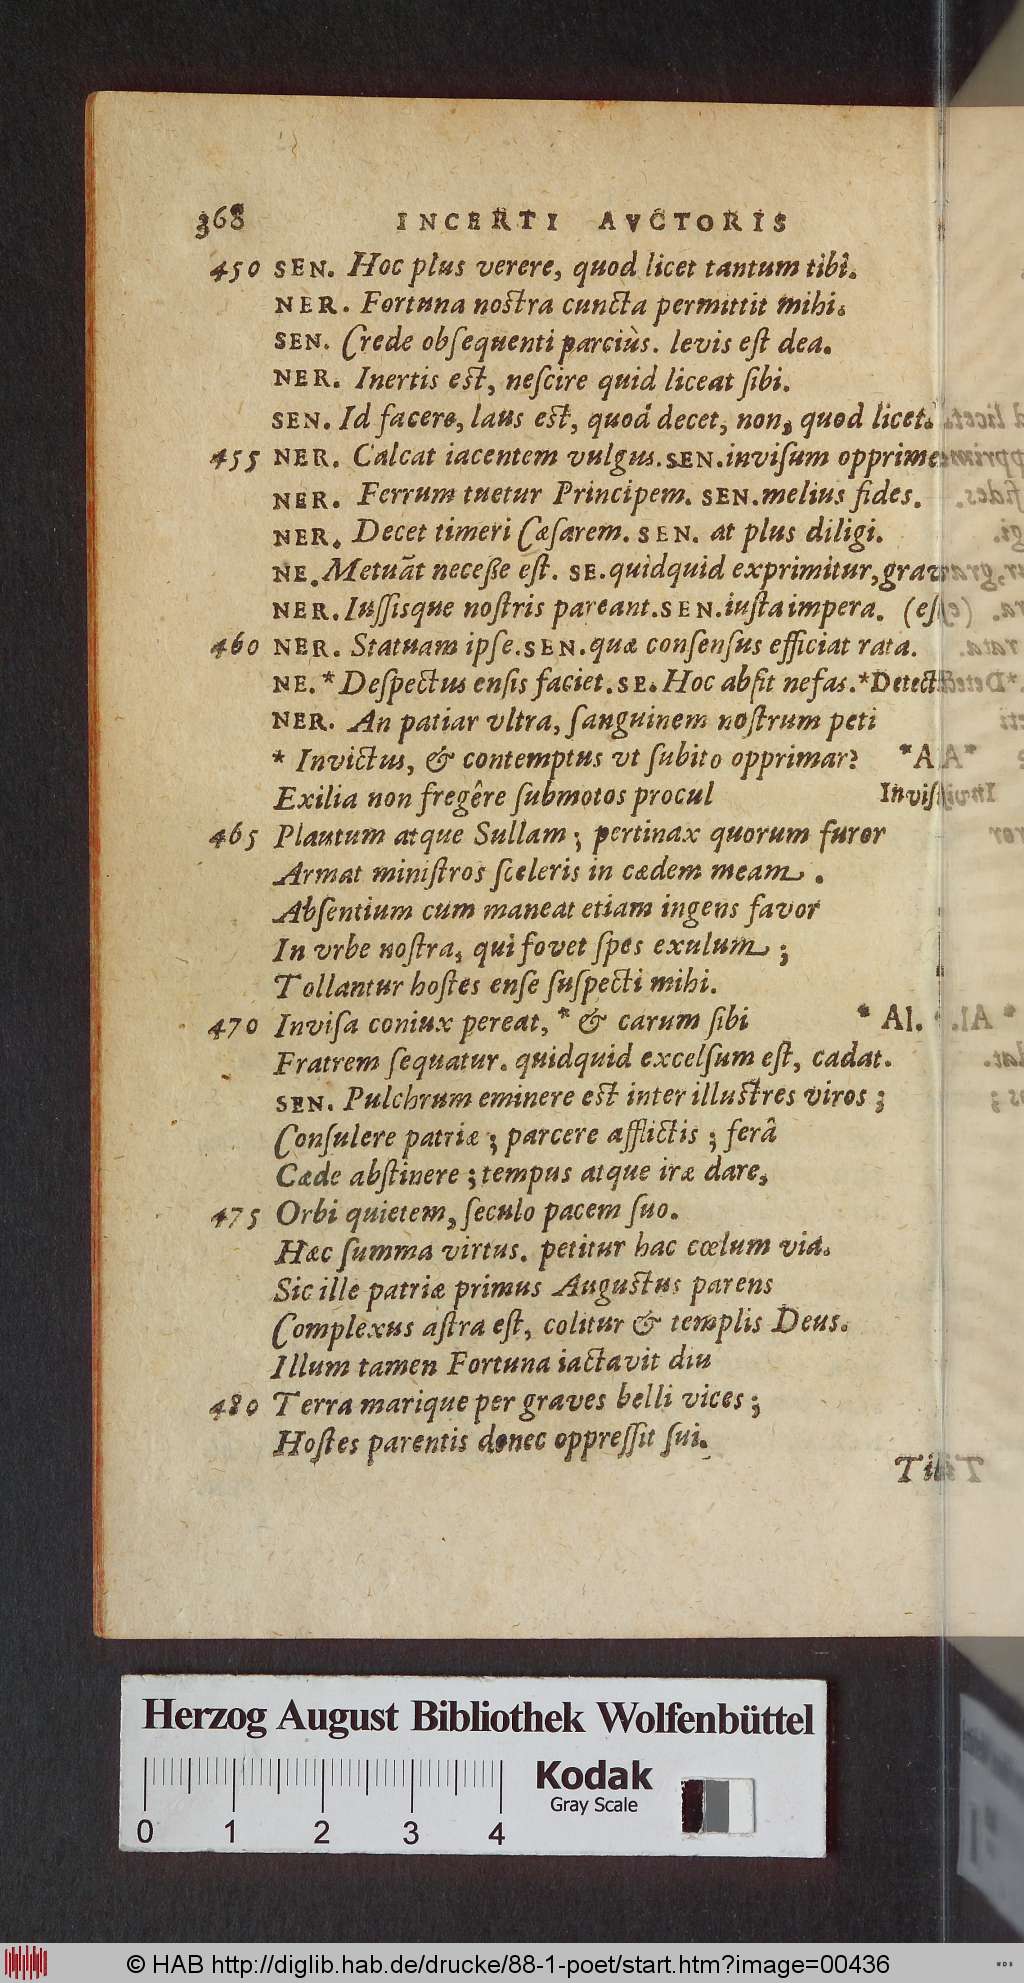 368 INCERTI AVCTORIS
450 SEN. Hoc plus verere, quod licet tantum tibi.
NER. Fortuna nostra cuncta permittit mihi.
SEN. Crede obsequenti parciùs. levis est dea.
NER. Inertis est, nescire quid liceat sibi.
SEN. Id facere, laus est, quod decet, non, quod licet.
455 NER. Calcat iacentem vulgus. SEN. invisum opprime
NER. Ferrum tuetur Principem. SEN. melius fides.
NER. Decet timeri Cæsarem. SEN. at plus diligi.
NE. Metuāt necesse est. SE. quidquid exprimitur, grav
NER. Iussisque nostris pareant. SEN. iusta impera. (es
460 NER. Statuam ipse. SEN. quæ consensus efficiat rata.
NE. * Despectus ensis faciet. SE. Hoc absit nefas. *Detect
NER. An patiar vltra, sanguinem nostrum peti
* Invictus, & contemptus vt subito opprimar? *A
Exilia non fregêre submotos procul Invis
465 Plautum atque Sullam; pertinax quorum furor
Armat ministros sceleris in cædem meam.
Absentium cum maneat etiam ingens favor
In vrbe nostra, qui fovet spes exulum;
Tollantur hostes ense suspecti mihi.
470 Invisa coniux pereat, * & carum sibi * Al.
Fratrem sequatur. quidquid excelsum est, cadat.
SEN. Pulchrum eminere est inter illustres viros;
Consulere patriæ; parcere afflictis; ferâ
Cæde abstinere; tempus atque iræ dare,
475 Orbi quietem, seculo pacem suo.
Hæc summa virtus. petitur hac cœlum via.
Sic ille patriæ primus Augustus parens
Complexus astra est, colitur & templis Deus.
Illum tamen Fortuna iactavit diu
480 Terra marique per graves belli vices;
Hostes parentis donec oppressit sui.
Ti
Herzog August Bibliothek Wolfenbüttel
Kodak
Gray Scale
0 1 2 3 4
© HAB http://diglib.hab.de/drucke/88-1-poet/start.htm?image=00436